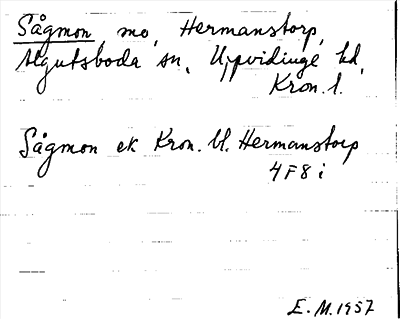 Sågmon, mo, Hermanstorp,
Algutsboda sn, Uppvidinge hd,
Kron. l.
Sågmon ek Kron. bl. Hermanstorp
4 F 8 i
E. M. 1957